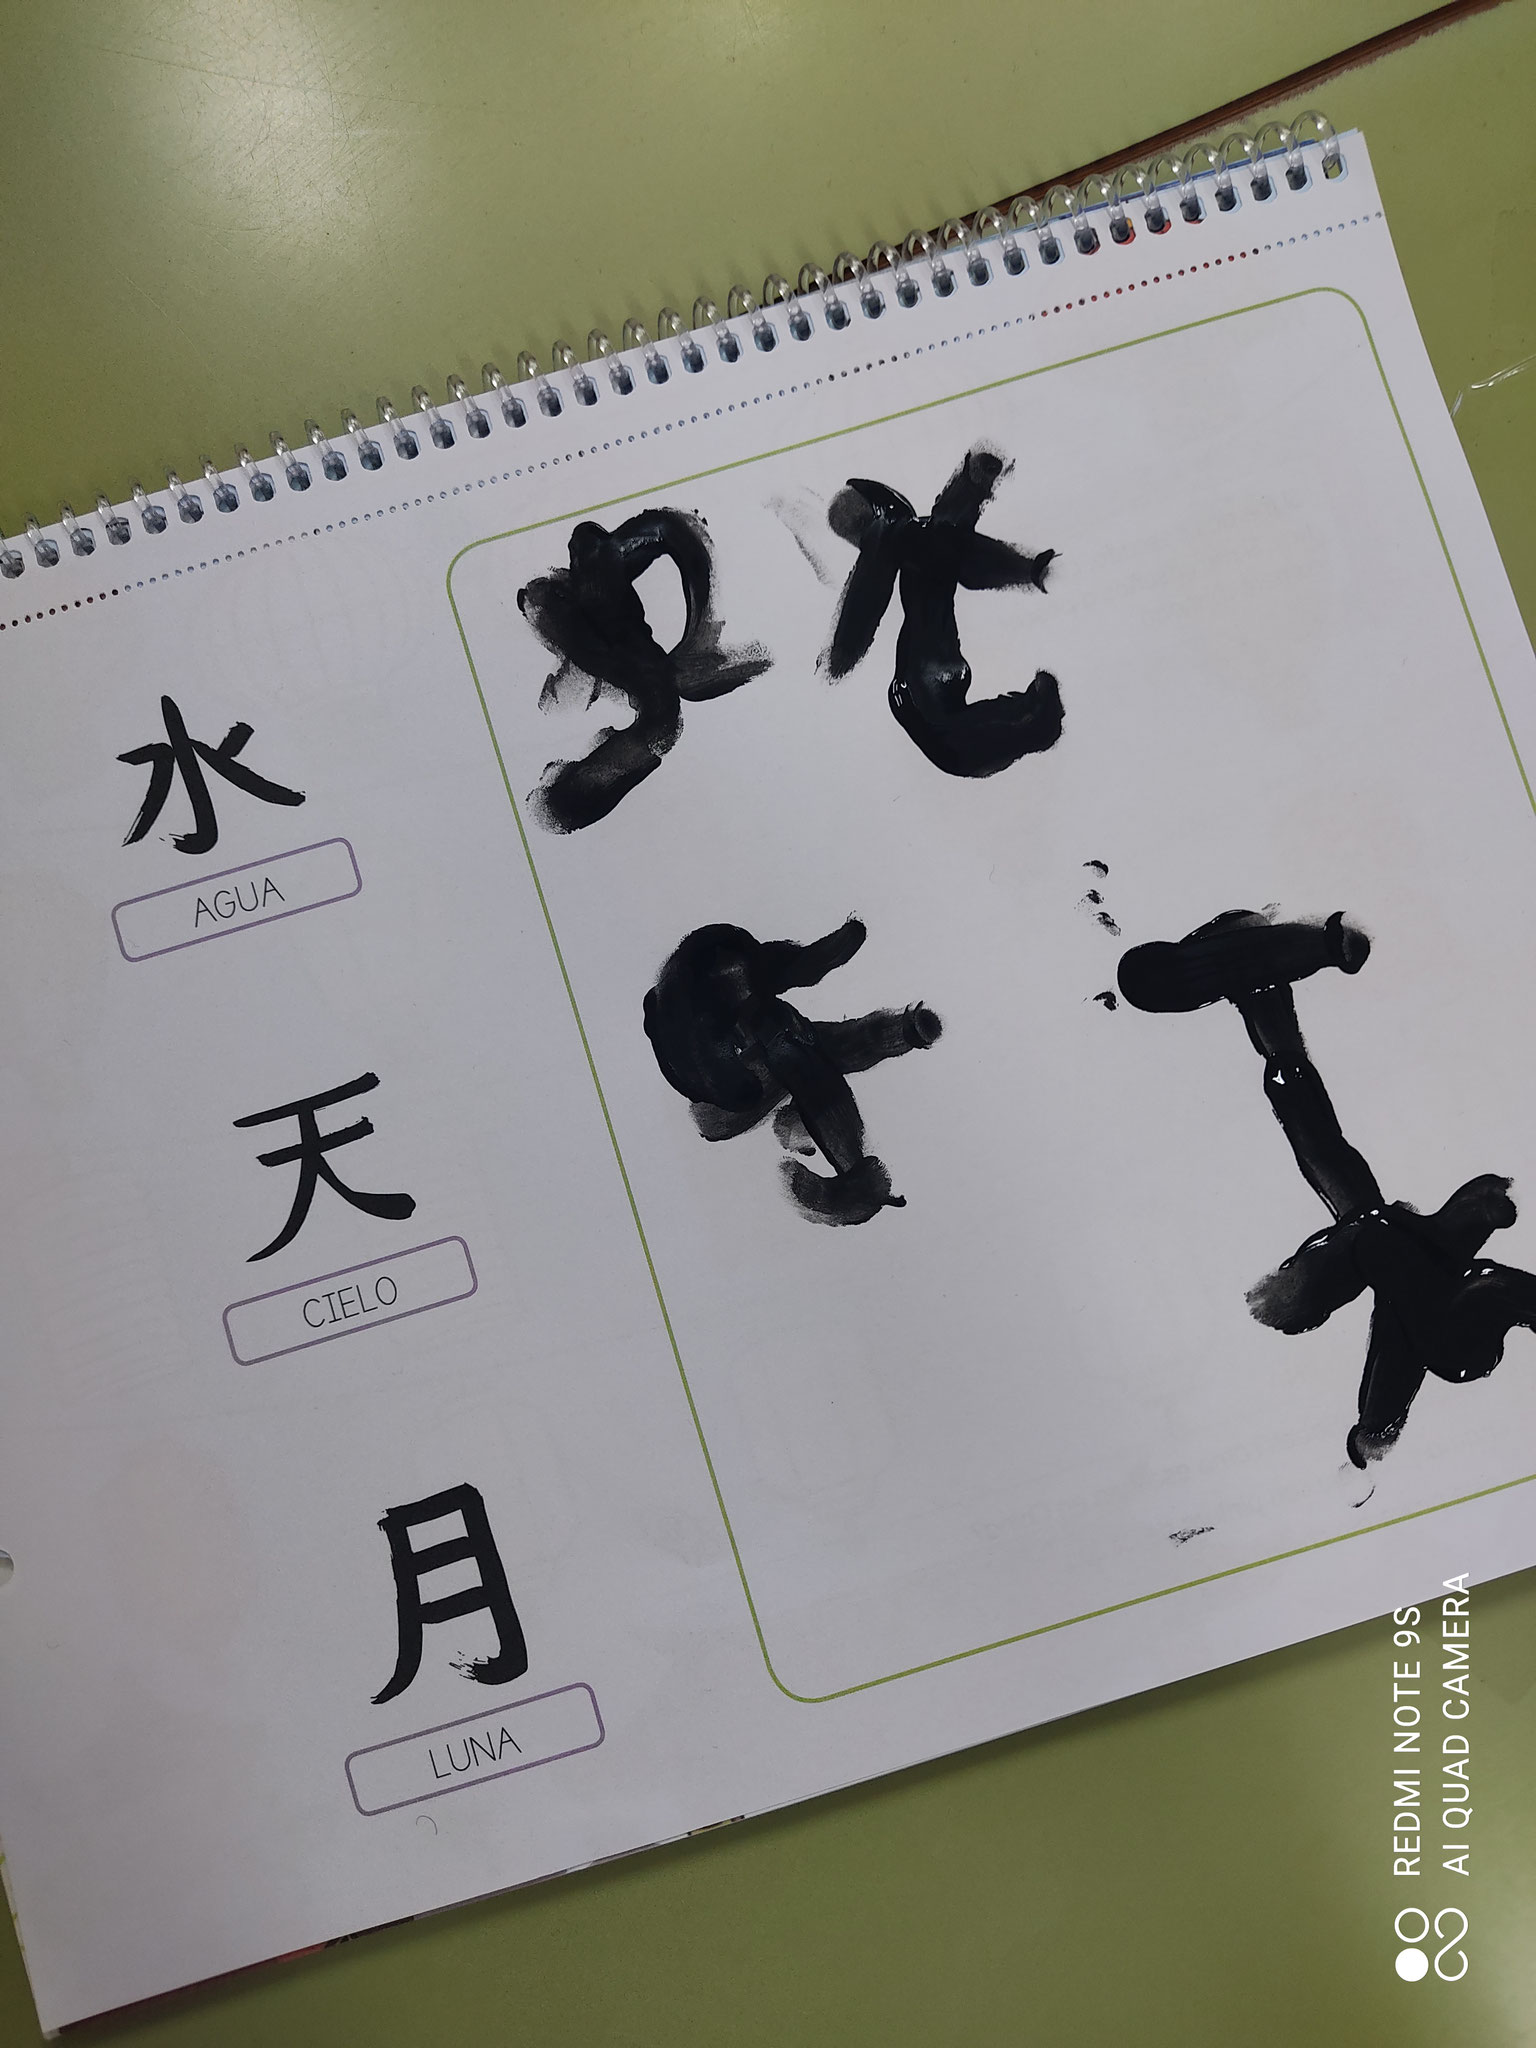 水
AGUA
天
CIELO
月
LUNA
REDMI NOTE 9S
AI QUAD CAMERA